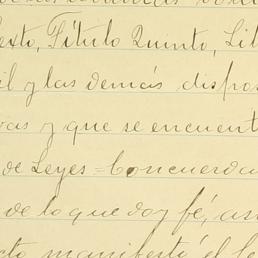 exto, Título Quinto, Li
il y las demás dispos
vas y que se encuent
de Leyes = Concuerda
de lo que doy fé, as
cto manifestó el Se